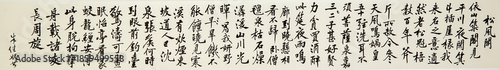 松風閣
依山築閣見
平川夜闌箕
斗插屋椽我
來名之意適
然老松魁梧
數百年斧
斤所赦今參
天風鳴媧皇
五十弦洗耳不
須菩薩泉嘉
二三子甚好賢
力貧買酒醉
此筵夜雨鳴
廊到曉懸相
看不歸臥僧
氈泉枯石燥
復潺湲山川光
暉為我妍野僧
早飢不能
饘曉見寒
溪有炊煙東
坡道人已沈
泉張侯何時
到眼前釣臺
驚濤可晝
眠怡亭看篆
蛟龍纏安得
此身脫拘攣
舟載諸友
長周旋